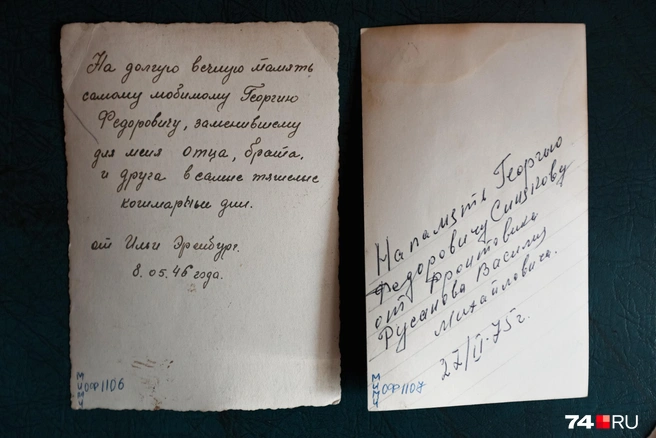 На долгую вечную память
самому любимому Георгию
Федоровичу, заменившему
для меня отца, брата,
и друга в самые тяжелые
кошмарные дни.
от Ильи Эренбург.
8.05.46 года.
МИМЧ
ОФ 1106
На память Георгию
Федоровичу Синякову
от фронтовика
Русанова Василия
Михайловича.
27/II-75 г.
МИМЧ
ОФ 1107
74.RU